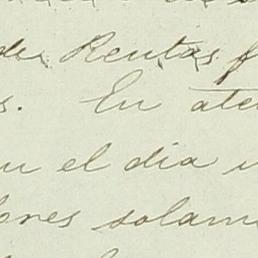 de Rentas
s. En ate
el dia
ores solam